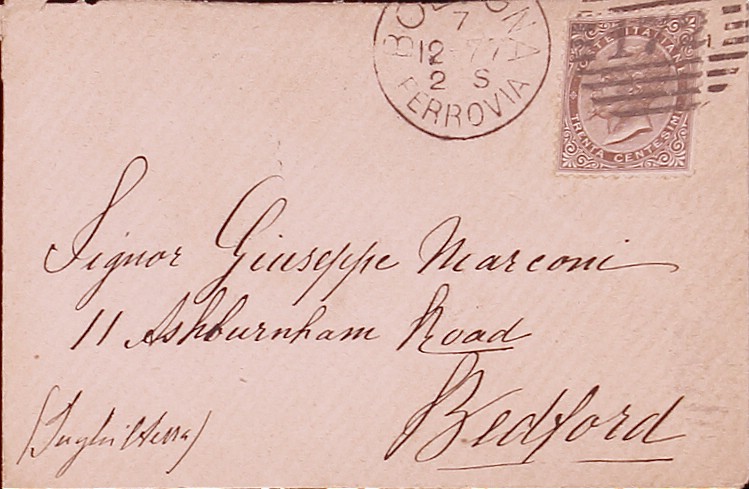 BOLOGNA
7
12-77
2 S
FERROVIA
POSTE ITALIANE
TRENTA CENTESIMI
Signor Giuseppe Marconi
11 Ashburnham Road
Bedford
(Inghilterra)